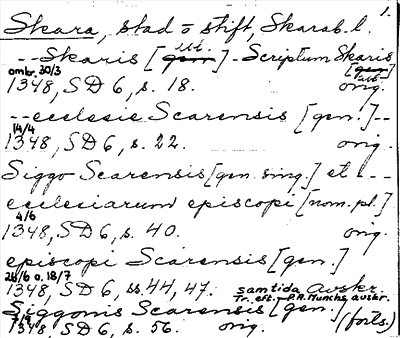 1.
Skara, stad o stift, Skarab. l.
abl.
--Skaris [gen.] - Scriptum Skaris
ombr. 30/3 [gen.] abl.
1348, SD 6, s. 18. orig.
--ecclesie Scarensis [gen.]--
14/4
1348, SD 6, s. 22. orig.
Siggo Scarensis [gen. sing.] et ---
ecclesiarum episcopi [nom. pl.]
4/6
1348, SD 6, s. 40. orig.
episcopi Scarensis [gen.]
24/6 o. 18/7
1348, SD 6, ss. 44, 47. samtida Avskr.
Tr. eft. P.A. Munchs avskr.
Siggonis Scarensis [gen.]
1348, SD 6, s. 56. orig. (forts.)